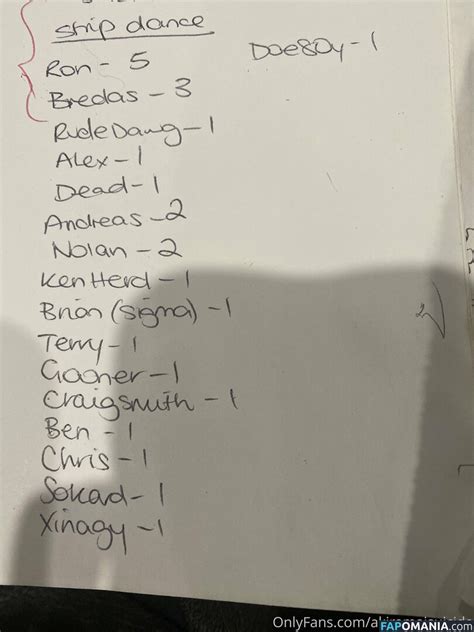 strip dance
Ron - 5
Doe80y - 1
Bredas - 3
RudeDawg - 1
Alex - 1
Dead - 1
Andreas - 2
Nolan - 2
KenHerd - 1
Brian (sigma) - 1
Terry - 1
Craigsmith - 1
Ben - 1
Chris - 1
Sokad - 1
Xinagy - 1
OnlyFans.com/
FAPOMANIA.COM